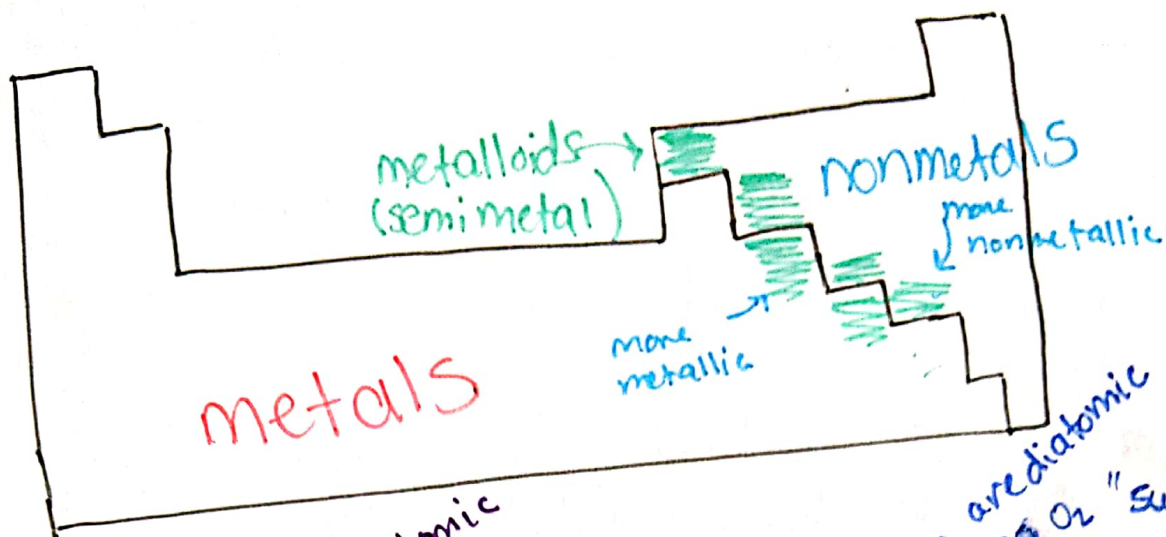 metalloids
(semimetal)
nonmetals
more
nonmetallic
more
metallic
metals
are diatomic
O₂ "su